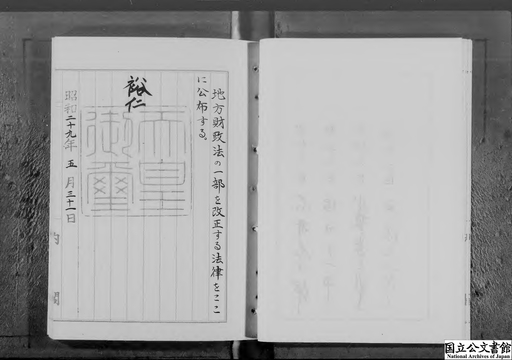 地方財政法の一部を改正する法律をここ
に公布する。
裕仁
天皇
御璽
昭和二十九年五月三十一日
内閣
国立公文書館
National Archives of Japan